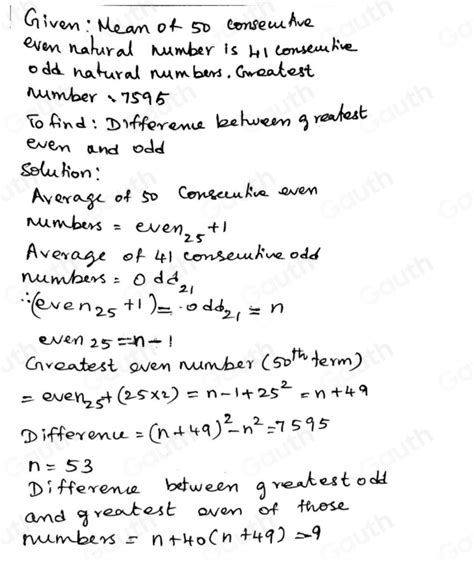 Given: Mean of 50 consecutive
even natural number is 41 consecutive
odd natural numbers. Greatest
number, 7595
To find: Difference between greatest
even and odd
Solution:
Average of 50 Consecutive even
numbers = even₂₅ +1
Average of 41 consecutive odd
numbers = Odd₂₁
∵(even₂₅ +1) = odd₂₁ = n
even 25 = n-1
Greatest even number (50th term)
= even₂₅+ (25x2) = n-1+25² = n+49
Difference = (n+49)²-n²=7595
n = 53
Difference between greatest odd
and greatest even of those
numbers = n+40(n+49) =9
Gauth